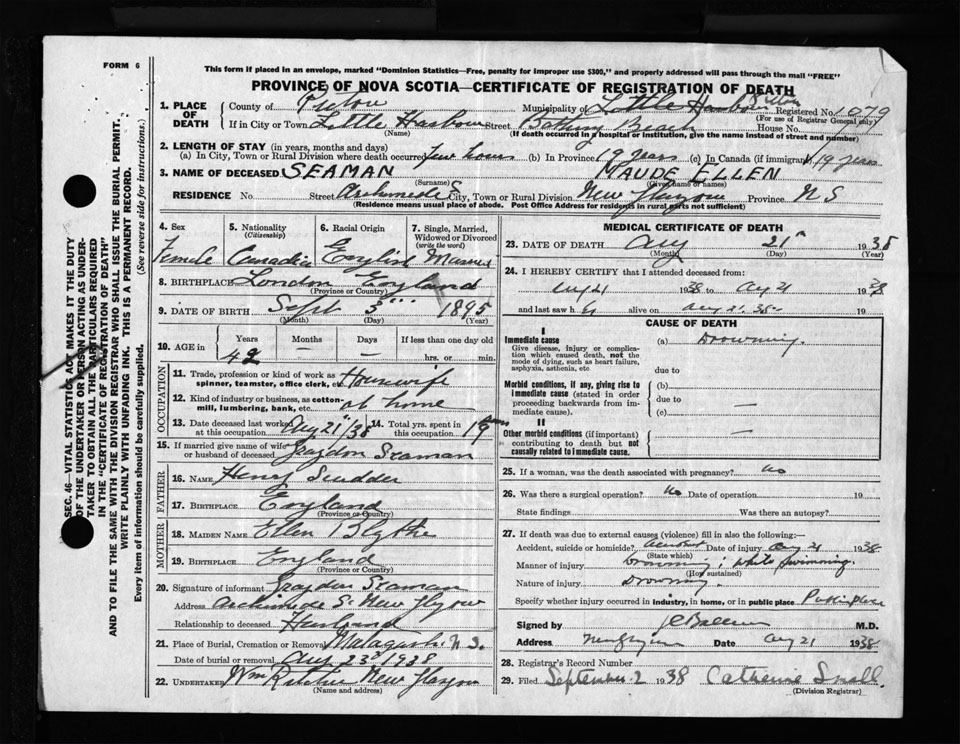 FORM 6
This form if placed in an envelope, marked "Dominion Statistics—Free, penalty for improper use $300," and properly addressed will pass through the mail "FREE"
PROVINCE OF NOVA SCOTIA—CERTIFICATE OF REGISTRATION OF DEATH
1. PLACE OF DEATH County of Pictou Municipality of Little Harbour Pictou Registered No. 1079
(For use of Registrar General only)
If in City or Town Little Harbour Street Bathing Beach House No.
(Name) (If death occurred in a hospital or institution, give the name instead of street and number)
2. LENGTH OF STAY (in years, months and days)
(a) In City, Town or Rural Division where death occurred Few hours (b) In Province 19 years (c) In Canada (if immigrant) 19 years
3. NAME OF DECEASED SEAMAN MAUDE ELLEN
(Surname) (Given name or names)
RESIDENCE No. Street Archimedes City, Town or Rural Division New Glasgow Province N S
(Residence means usual place of abode. Post Office Address for residents in rural parts not sufficient)
4. Sex Female
5. Nationality (Citizenship) Canadian
6. Racial Origin English
7. Single, Married, Widowed or Divorced (write the word) Married
8. BIRTHPLACE London England
(Province or Country)
9. DATE OF BIRTH Sept 1895
(Month) (Day) (Year)
10. AGE in Years 42 Months — Days — If less than one day old
hrs. or min.
OCCUPATION
11. Trade, profession or kind of work as spinner, teamster, office clerk, etc. Housewife
12. Kind of industry or business, as cotton-mill, lumbering, bank, etc. at home
13. Date deceased last worked at this occupation Aug 21/38 14. Total yrs. spent in this occupation 19 years
15. If married give name of wife or husband of deceased Graydon Seaman
FATHER
16. NAME Henry Scudder
17. BIRTHPLACE England
(Province or Country)
MOTHER
18. MAIDEN NAME Ellen Blythe
19. BIRTHPLACE England
(Province or Country)
20. Signature of informant Graydon Seaman
Address Archimedes S. New Glasgow
Relationship to deceased Husband
21. Place of Burial, Cremation or Removal Malagash N.S.
Date of burial or removal Aug 23rd 1938
22. UNDERTAKER Wm Ritchie New Glasgow
(Name and address)
MEDICAL CERTIFICATE OF DEATH
23. DATE OF DEATH Aug 21 1938
(Month) (Day) (Year)
24. I HEREBY CERTIFY that I attended deceased from:
Aug 21 1938 to Aug 21 1938
and last saw her alive on Aug 21. 38 19
CAUSE OF DEATH
I
Immediate cause (a) Drowning.
Give disease, injury or complication which caused death, not the mode of dying, such as heart failure, asphyxia, asthenia, etc
due to
Morbid conditions, if any, giving rise to immediate cause (stated in order proceeding backwards from immediate cause).
(b)
due to
(c) —
II
Other morbid conditions (if important) contributing to death but not causally related to immediate cause. —
25. If a woman, was the death associated with pregnancy? no
26. Was there a surgical operation? No Date of operation 19
State findings Was there an autopsy?
27. If death was due to external causes (violence) fill in also the following:—
Accident, suicide or homicide? Accident Date of injury Aug 21 1938
(State which)
Manner of injury Drowning; while swimming.
(How sustained)
Nature of injury Drowning.
Specify whether injury occurred in industry, in home, or in public place Public place
Signed by M.D.
Address New Glasgow Date Aug 21 1938
28. Registrar's Record Number
29. Filed September 2 1938 Catherine Small.
(Division Registrar)
SEC. 46—VITAL STATISTICS ACT MAKES IT THE DUTY
OF THE UNDERTAKER OR PERSON ACTING AS UNDER-
TAKER TO OBTAIN ALL THE PARTICULARS REQUIRED
IN THE "CERTIFICATE OF REGISTRATION OF DEATH"
AND TO FILE THE SAME WITH THE DIVISION REGISTRAR WHO SHALL ISSUE THE BURIAL PERMIT.
WRITE PLAINLY WITH UNFADING INK. THIS IS A PERMANENT RECORD.
Every item of information should be carefully supplied. (See reverse side for instructions.)